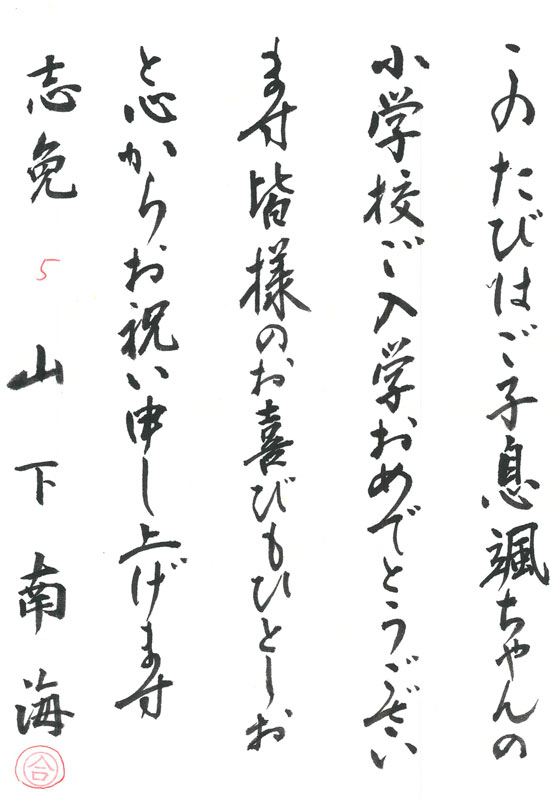 このたびはご子息颯ちゃんの
小学校ご入学おめでとうござい
ます皆様のお喜びもひとしお
と心からお祝い申し上げます
志免 5 山下南海
合